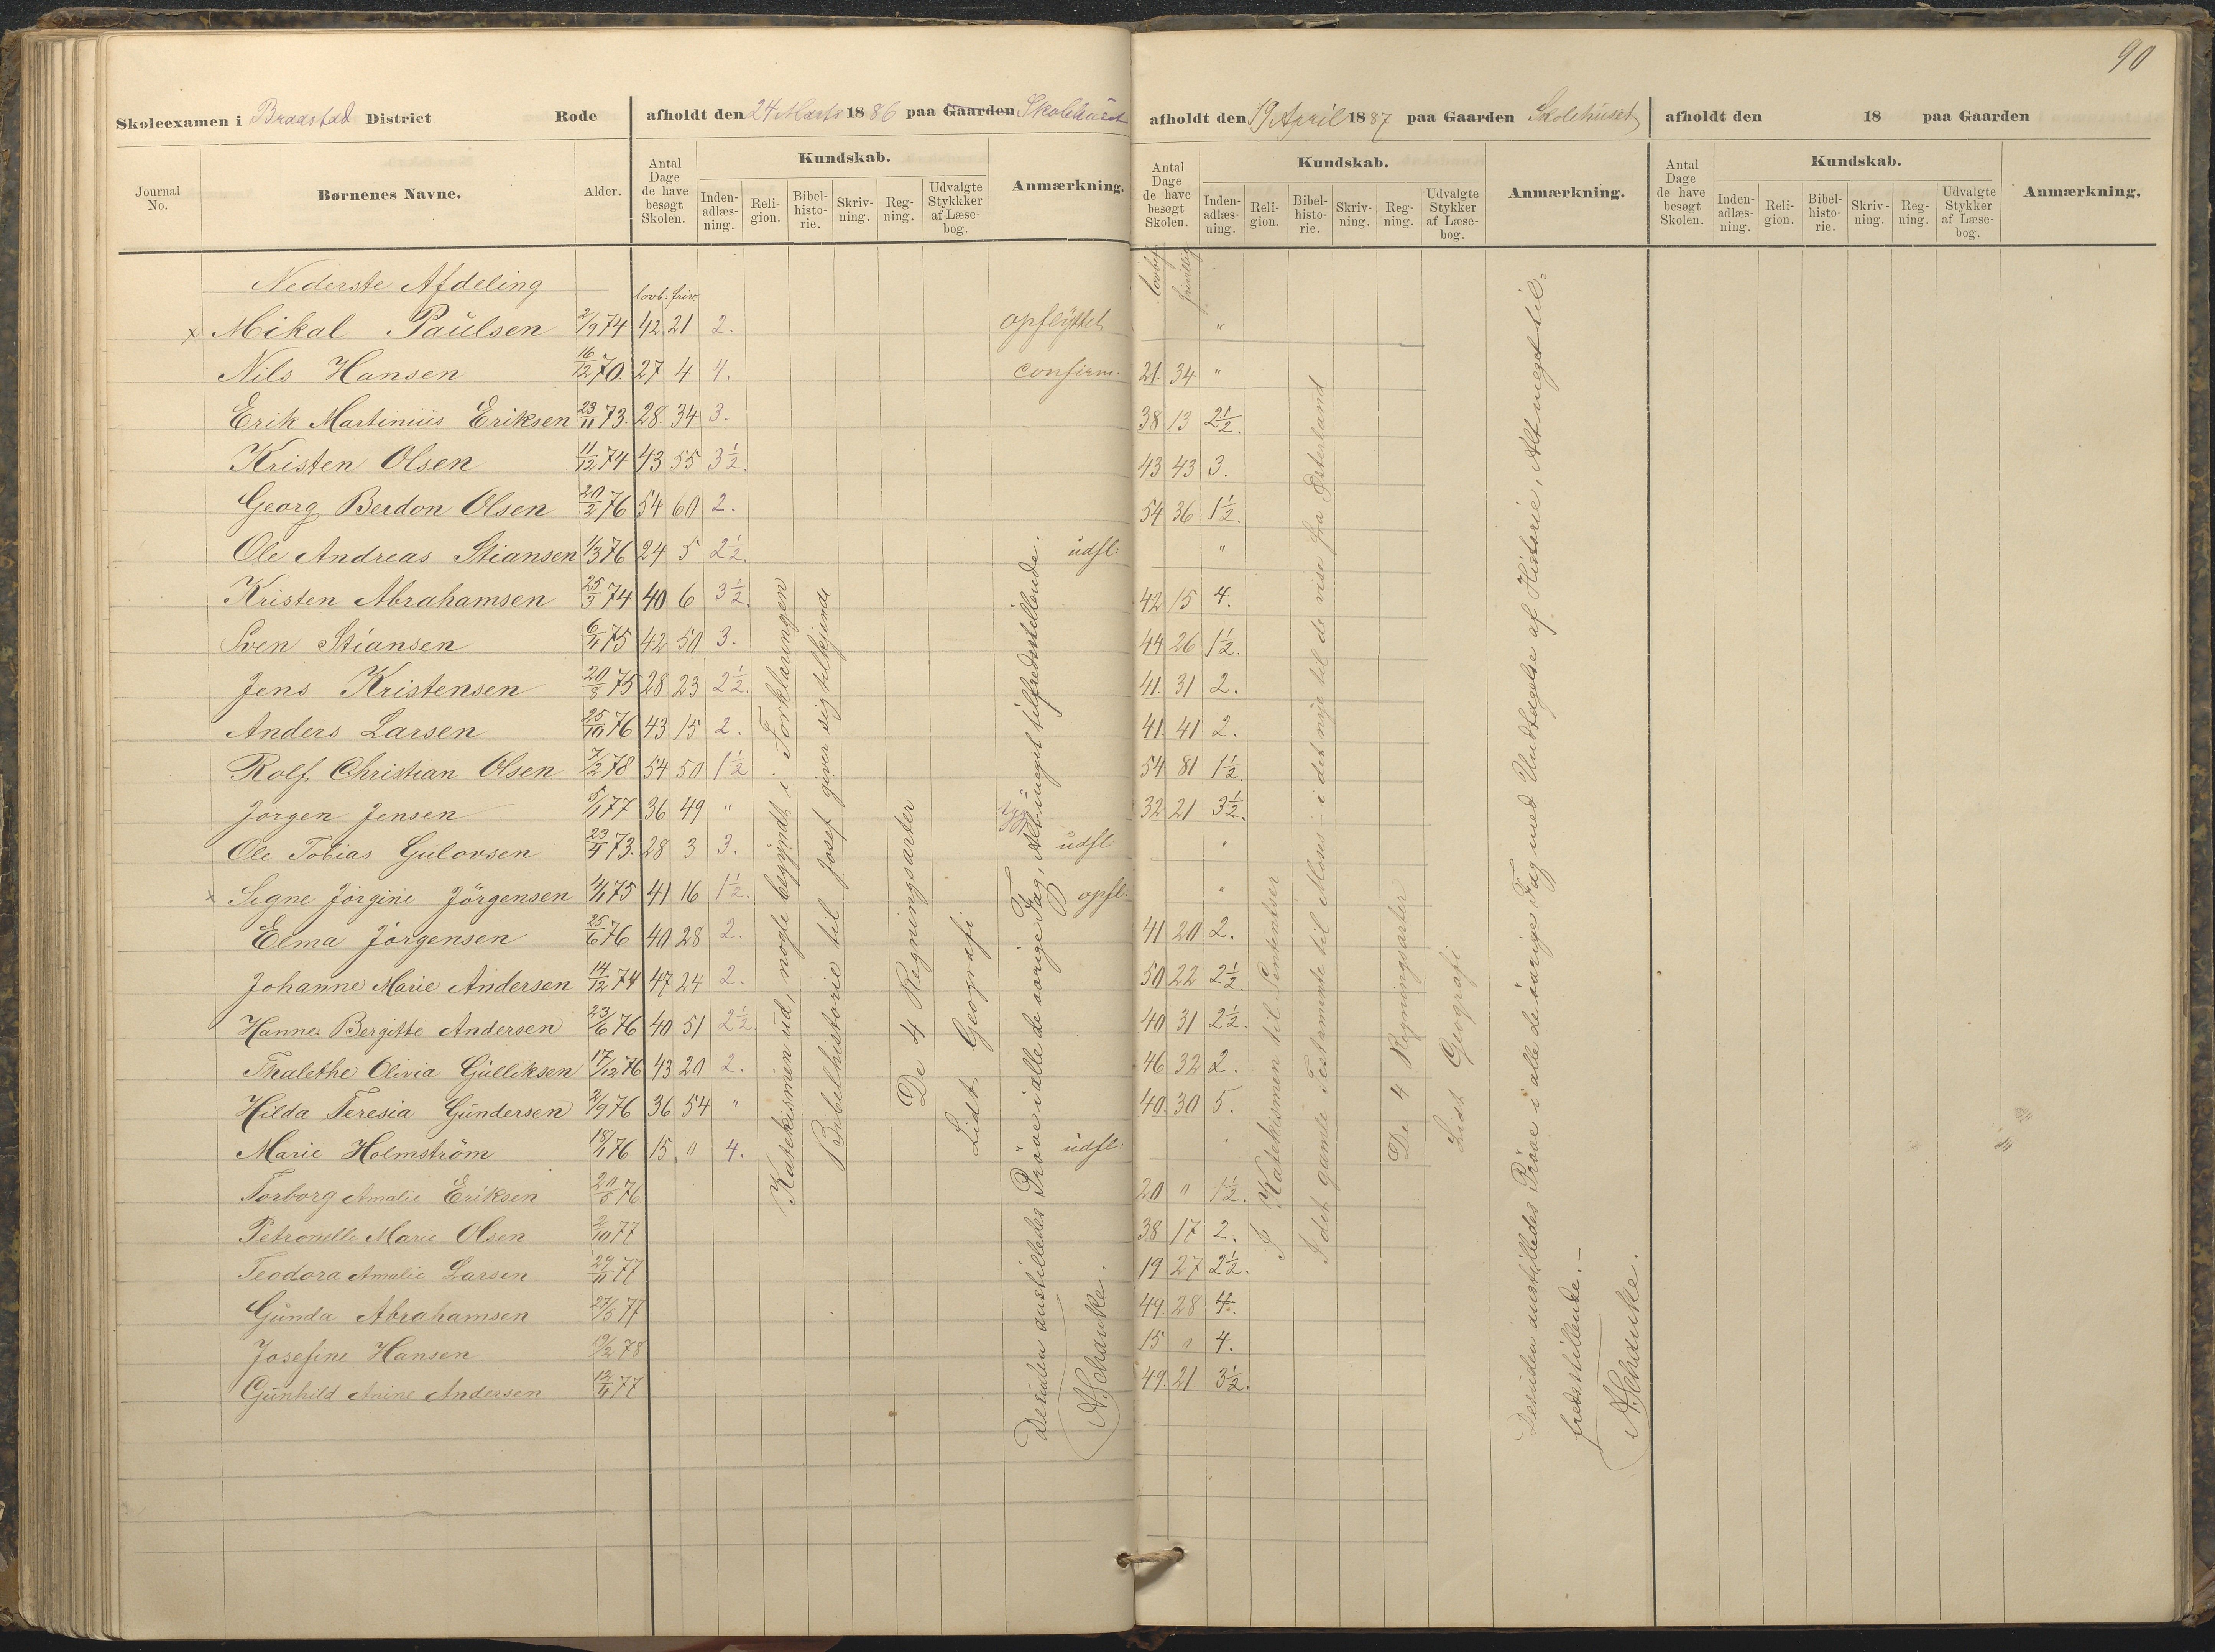 90
Skoleexamen i Braastad District Rode afholdt den 24 Marts 1886 paa Gaarden Skolehuset afholdt den 19 April 1887 paa Gaarden Skolehuset afholdt den 18 paa Gaarden
Journal No. Børnenes Navne. Alder. Antal Dage de have besøgt Skolen. Kundskab. Inden-adlæs-ning. Reli-gion. Bibel-histo-rie. Skriv-ning. Reg-ning. Udvalgte Stykkker af Læse-bog. Anmærkning. Antal Dage de have besøgt Skolen. Kundskab. Inden-adlæs-ning. Reli-gion. Bibel-histo-rie. Skriv-ning. Reg-ning. Udvalgte Stykker af Læse-bog. Anmærkning. Antal Dage de have besøgt Skolen. Kundskab. Inden-adlæs-ning. Reli-gion. Bibel-histo-rie. Skriv-ning. Reg-ning. Udvalgte Stykker af Læse-bog. Anmærkning.
Nederste Afdeling lovb: friv. lovbef. frivillig
x Mikal Paulsen 2/9 74 42. 21 2. opflyttet "
Nils Hansen 16/12 70. 27 4 4. confirm. 21. 34 "
Erik Martinius Eriksen 23/11 73. 28. 34 3. 38 13 2 1/2.
Kristen Olsen 11/12 74 43 55 3 1/2. 43 43 3.
Georg Berdon Olsen 20/2 76 54 60 2. 54 36 1 1/2.
Ole Andreas Stiansen 1/3 76 24 5 2 1/2. udfl: "
Kristen Abrahamsen 25/3 74 40 6 3 1/2. 42. 15 4.
Sven Stiansen 6/4 75 42 50 3. 44 26 1 1/2.
Jens Kristensen 20/8 75 28 23 2 1/2. 41. 31 2.
Anders Larsen 25/10 76 43 15 2. 41. 41 2.
Rolf Christian Olsen 7/2 78 54 50 1 1/2 54 81 1 1/2.
Jörgen Jensen 5/1 77 36 49 " 32 21 3 1/2.
Ole Tobias Gulovsen 23/4 73. 28 3 3. udfl "
x Signe Jörgine Jörgensen 4/1 75 41 16 1 1/2. opfl. "
Elma Jörgensen 25/6 76 40 28 2. 41 20 2.
Johanne Marie Andersen 14/12 74 47 24 2. 50 22 2 1/2.
Hanna Bergitte Andersen 23/6 76 40 51 2 1/2. 40 31 2 1/2.
Thalethe Olivia Gulliksen 17/12 76 43 20 2. 46 32 2.
Hilda Teresia Gundersen 2/9 76 36 54 " 40. 30 5.
Marie Holmström 18/1 76 15. " 4. udfl: "
Torborg Amalie Eriksen 20/5 76. 20 " 1 1/2.
Petronelle Marie Olsen 2/10 77 38 17 2.
Teodora Amalie Larsen 29/11 77 19 27 2 1/2.
Gunda Abrahamsen 27/5 77 49. 28 4.
Josefine Hansen 19/2 78 15 " 4.
Gunhild Anine Andersen 12/4 77 49. 21. 3 1/2.
Katekismen ud, nogle begyndt i Forklaringen
Bibelhistorie til Josef giver sig tilkjende
De 4 Regningsarter
Lidt Geografi
Desuden anstilledes Pröve i alle de övrige Fag, Alt meget tilfredsstillende.
A. Schanke.
I Katekismen til Sententser
I det gamle Testamente til Moses - i det nye til de vise fra Østerland
De 4 Regningsarter
Lidt Geografi
Desuden anstilledes Pröve i alle de övrige Fag med Undtagelse af Historie, Alt meget til=
fredsstillende. -
A. Schanke.